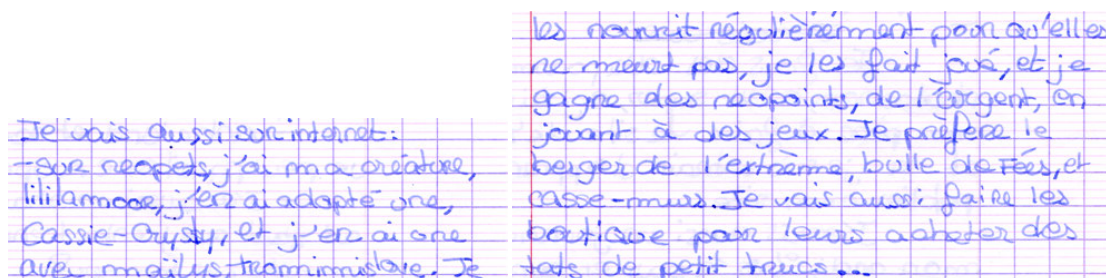 Je vais aussi sur internet:
-sur neopets, j'ai ma créature,
lililamooe, j'en ai adopté une,
Cassie-Crysty, et j'en ai une
avec maïlys, Je
les nourrit régulièrement pour qu'elles
ne meurt pas, je les fait joué, et je
gagne des neopoints, de l'argent, en
jouant à des jeux. Je préfère le
berger de l'extrème, bulle de Fées, et
casse-murs. Je vais aussi faire les
boutique pour leurs acheter des
tats de petit trucs...